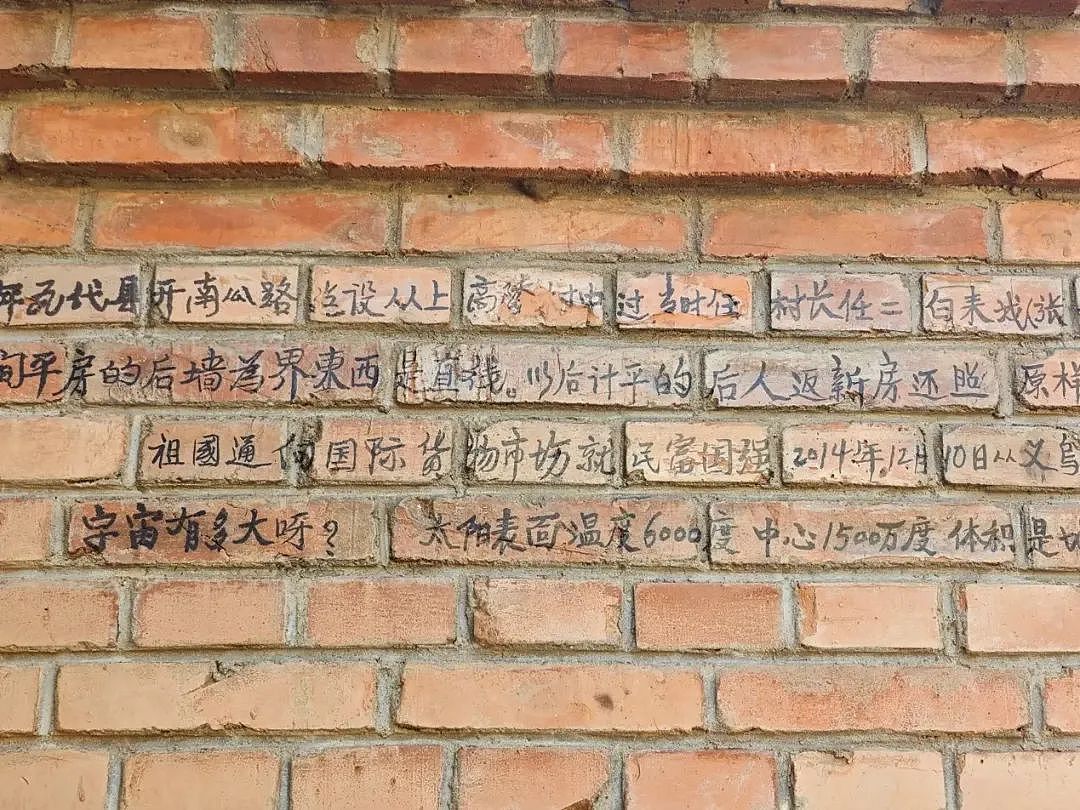 年瓦代县开南公路当设从上高 村中过 当时任村长任二白来我(张
间平房的后墙为界東西是直线。以后计平的后人返新房还照原样
祖國通向国际货物市场就民富国强2014年12月10日从义乌
宇宙有多大呀?太阳表面温度6000度中心1500万度体积是